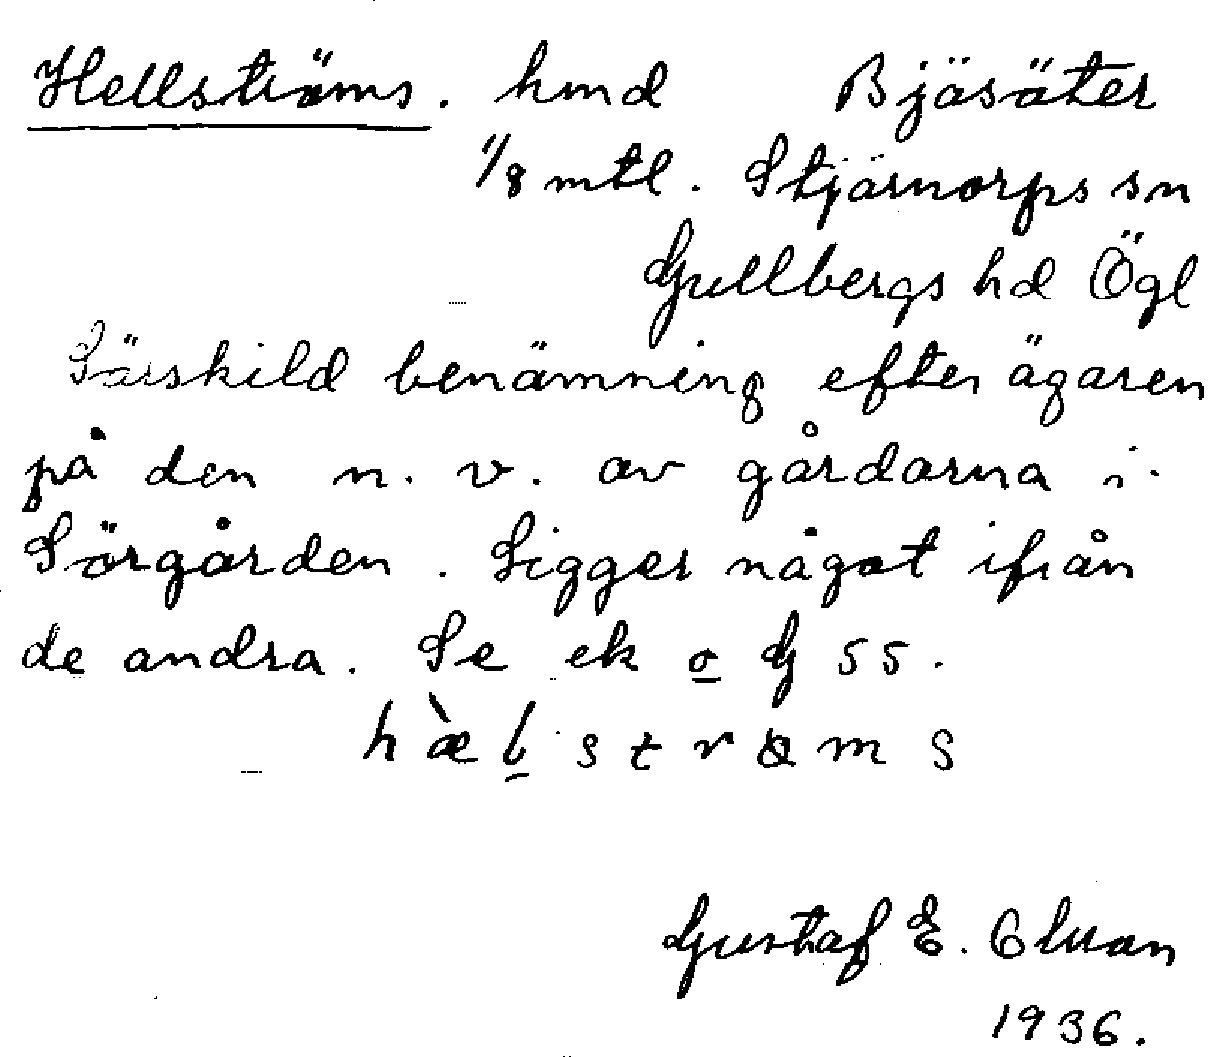 Hellströms. hmd Bjäsäter
1/8 mtl. Stjärnorps sn
Gullbergs hd Ögl
Särskild benämning efter ägaren
på den n. v. av gårdarna i
Sörgården. Ligger något ifrån
de andra. Se ek o G 55.
hæ̀l̲ strøms
Gustaf E.
1936.